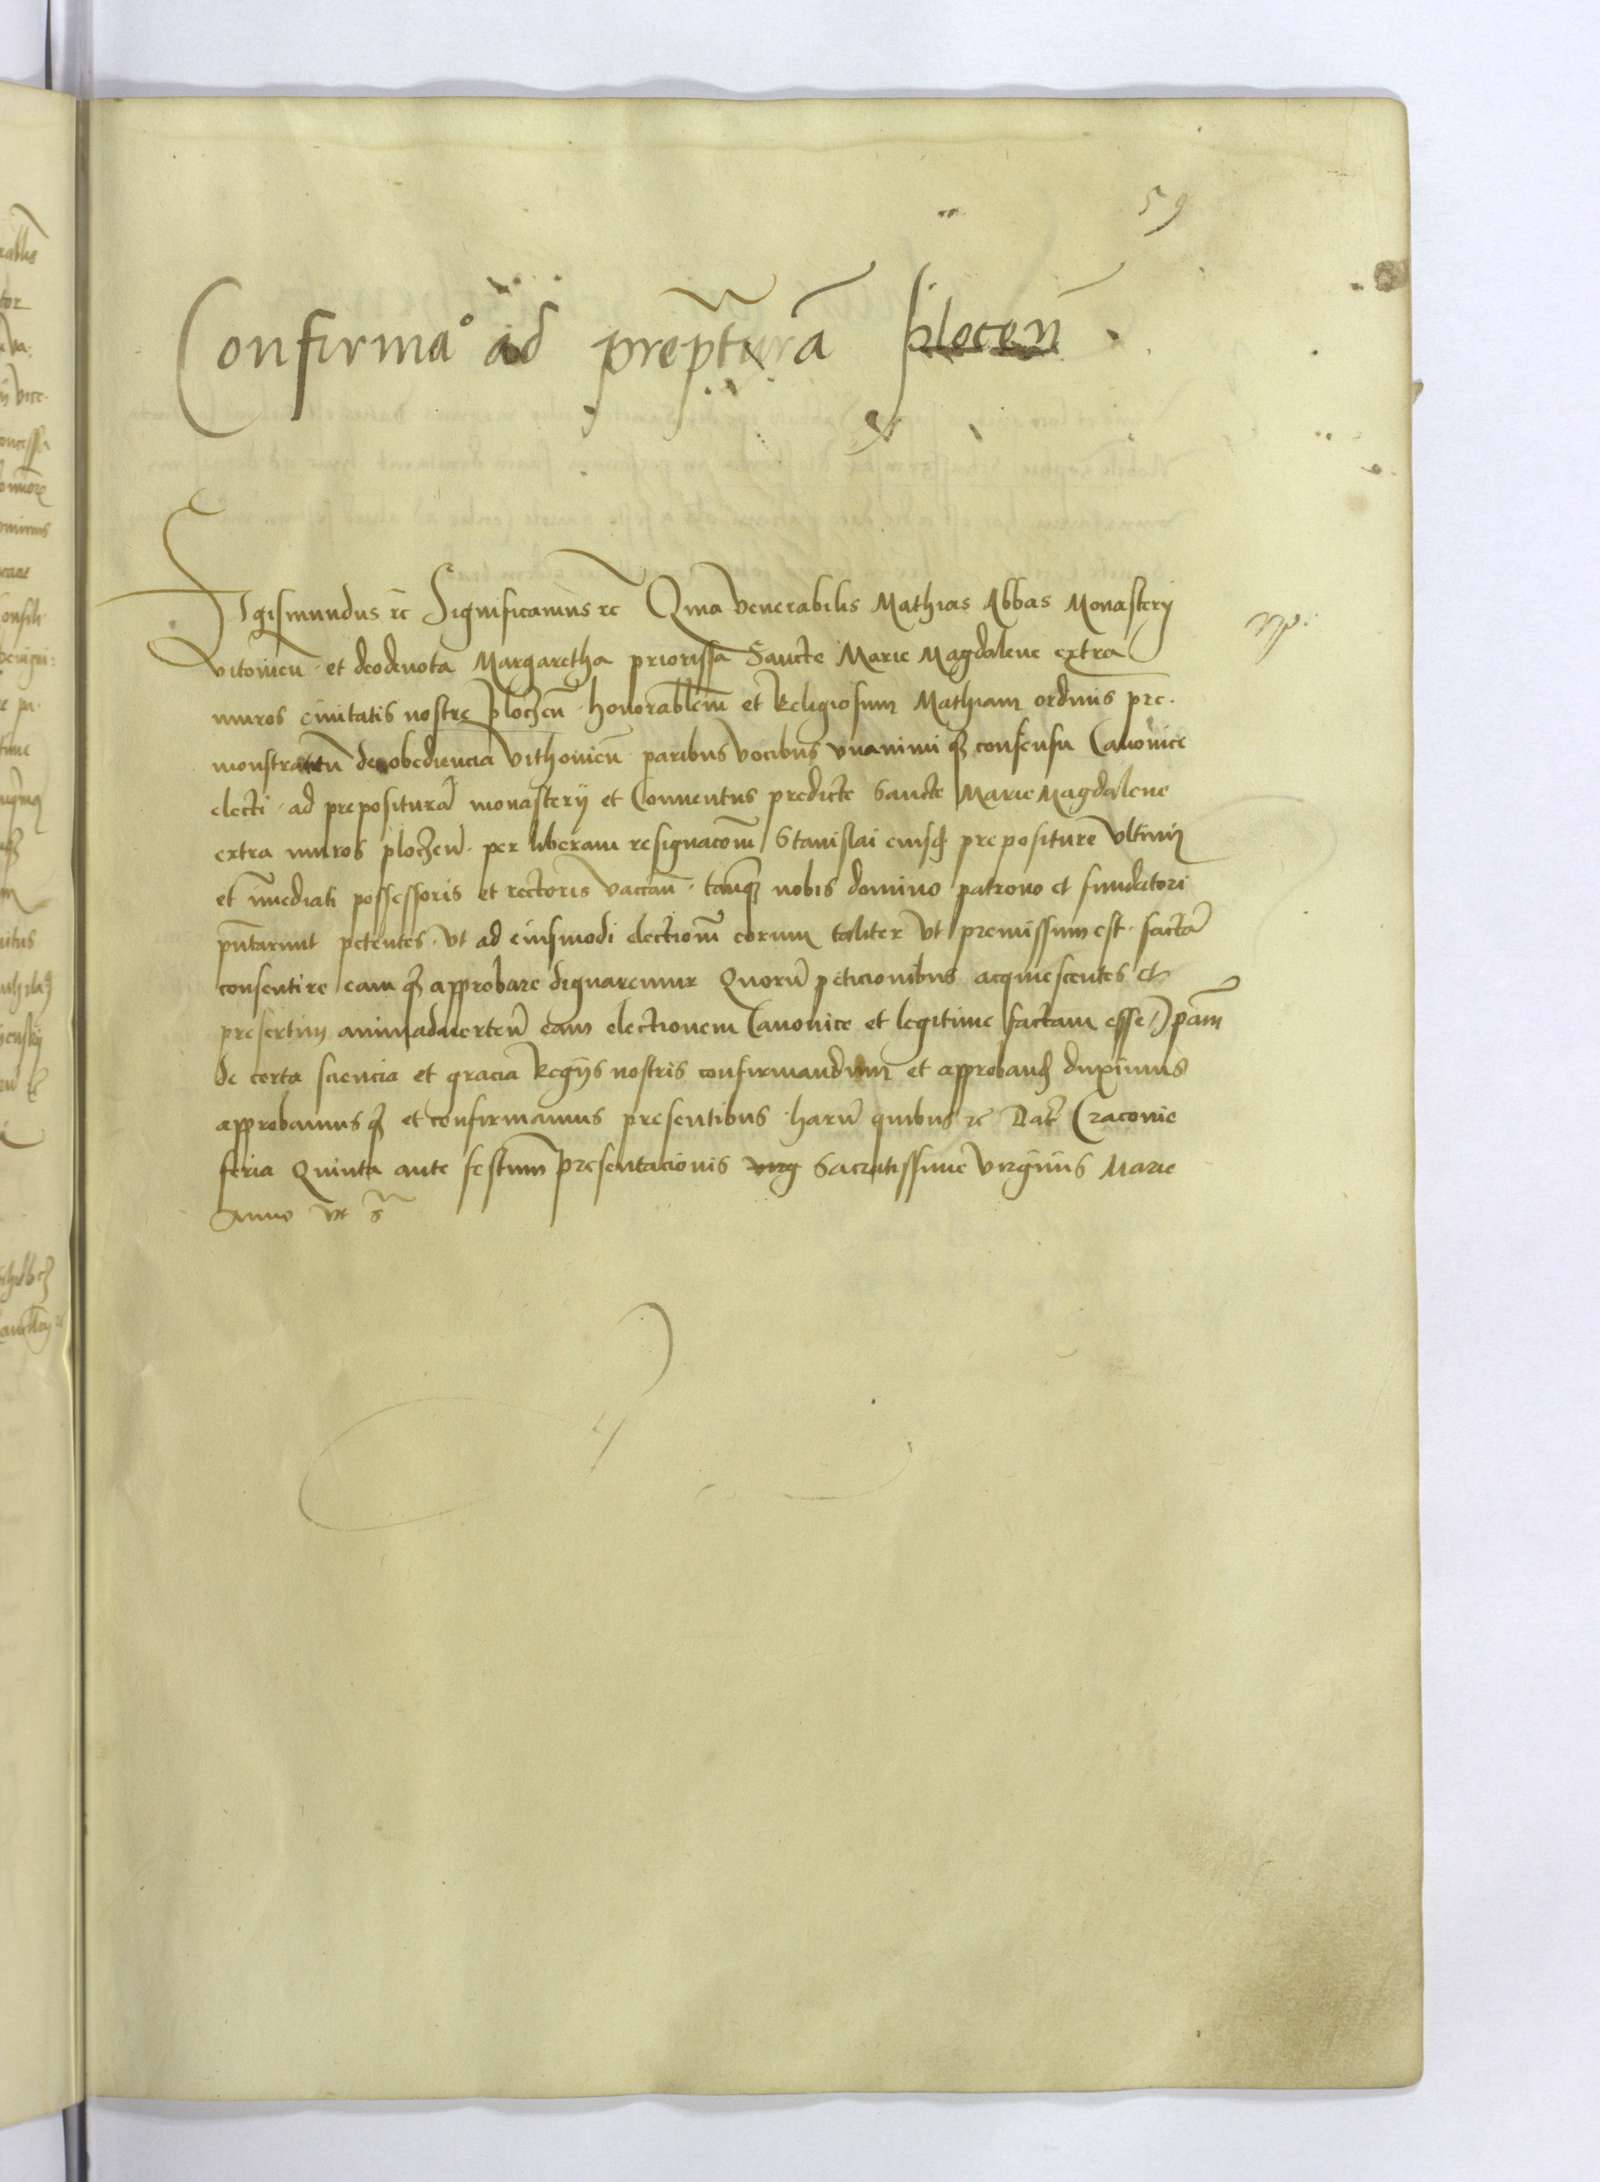 59
Confirma° ad prep̃turã plocen̄
Sigismundus rc̄ Significamus rc̄ Qm̄a venerabilis Mathias Abbas Monasterij
vitovien̄ · et deodevota Margaretha priorissa Sancte Marie Magdalene extra
muros civitatis nostre ploczen̄ · honorabilem̄ et Religiosum Mathiam ordinis pre·
monstraten̄ de obediencia vithovien̄ · paribus vocibus vnanimi qȝ consensu Canonice
electi · ad preposituram̄ monasterij et Conuentus predicte Sancte Marie Magdalene
extra muros ploczen̄ · per liberam resignacom̄ Stanislai eiusdȝ prepositure vltimi
et im̄ediati possessoris et rectoris vaccan̄ · tanqȝ nobis domino patrono et fundatori
pn̄tarunt petentes · vt ad eiusmodi electionem̄ eorum taliter vt premissum est · factam̄
consentire eam qȝ approbare dignaremur Quorum̄ peticionibus acquiescentes et
presertim animaduerten̄ eam electionem Canonice et legitime factam esse ip̄am
de certa sciencia et gracia Regijs nostris confirmandum et approbandȝ duximus
approbamus qȝ et confirmamus presentibus · harum̄ quibus rc̄ Dat̄ Cracovie
feria Quinta ante festum presentacionis virg Sacratissime virginis Marie
Anno vt s̄